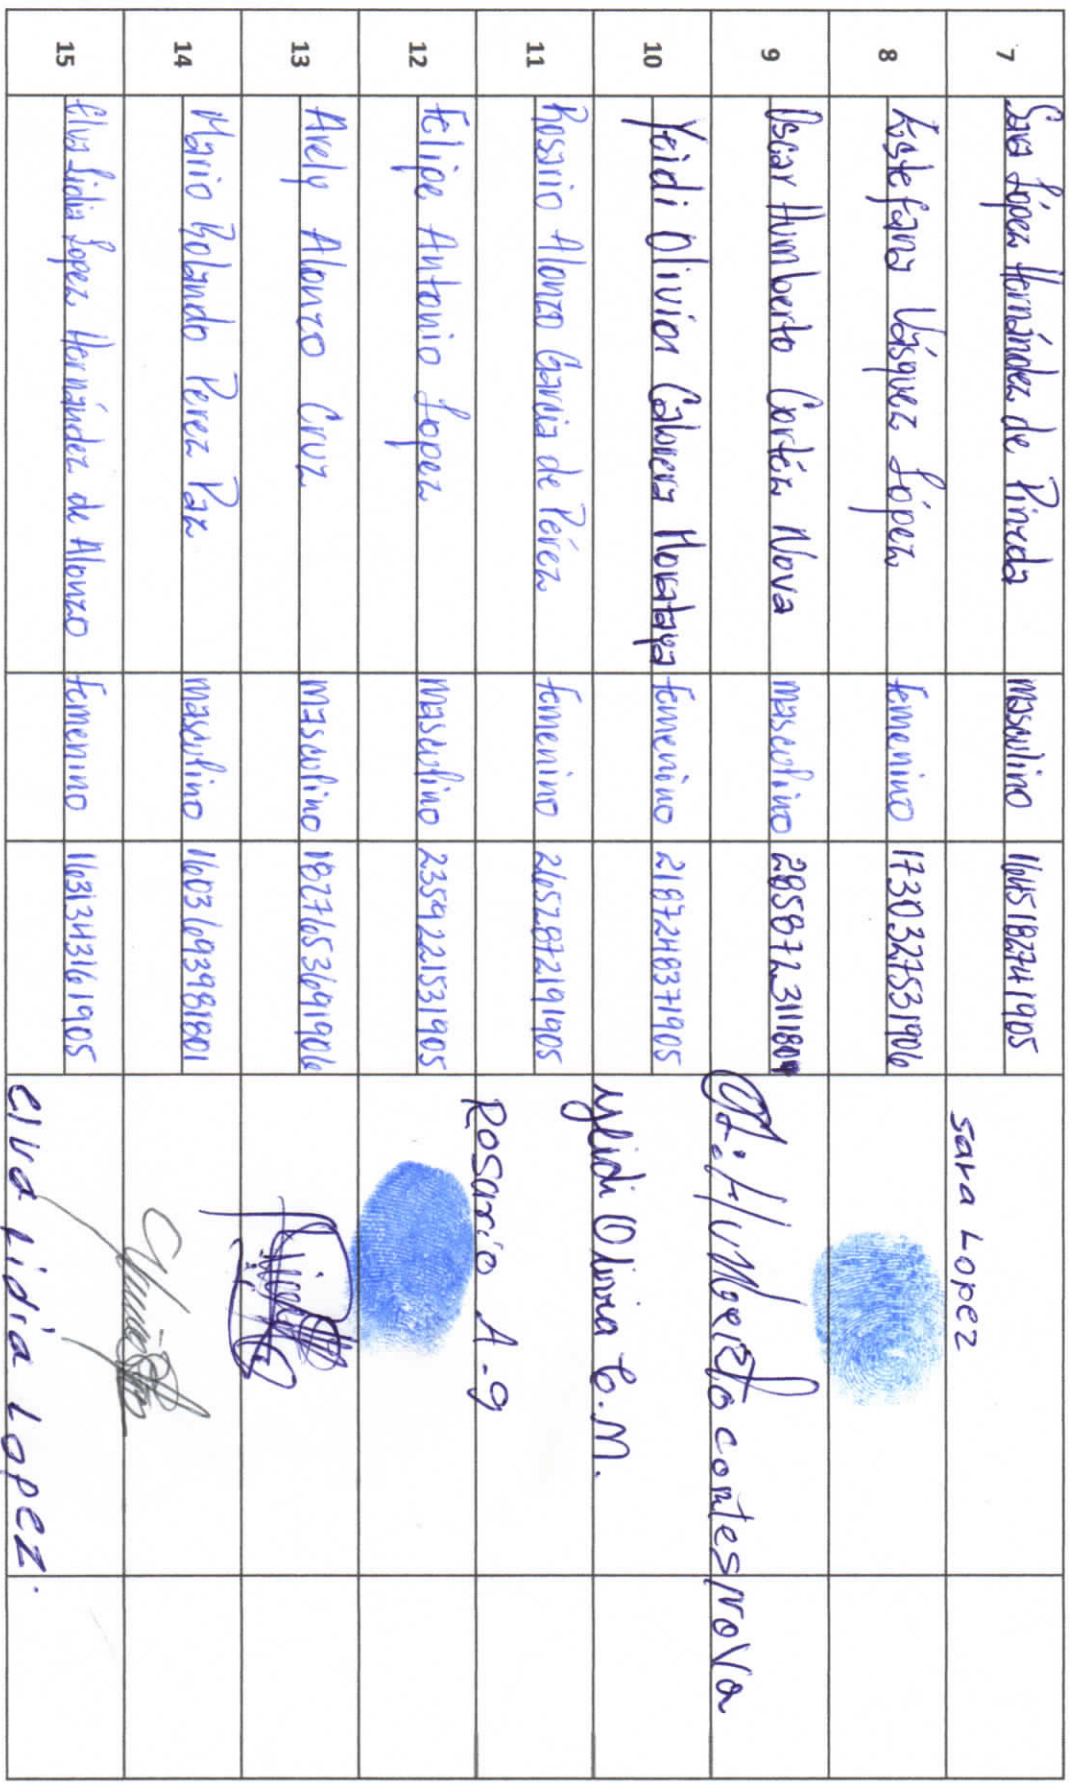 7 Sara López Hernández de Pineda masculino 1645182741905 Sara Lopez
8 Estefana Vásquez López femenino 1730327531906
9 Oscar Humberto Cortéz Nova masculino
10 Yeidi Olivia Cabrera Morataya femenino 2187248371905 Yeidi Olivia C.M.
11 Rosario Alonzo Garcia de Pérez femenino 2652872191905 Rosario A-g
12 Felipe Antonio Lopez masculino 2359221531905
13 Arely Alonzo Cruz masculino 1827653691906
14 Mario Rolando Perez Paz masculino 1603693981801
15 Elva Lidia Lopez Hernández de Alonzo femenino 1631343161905 elva Lidia Lopez.